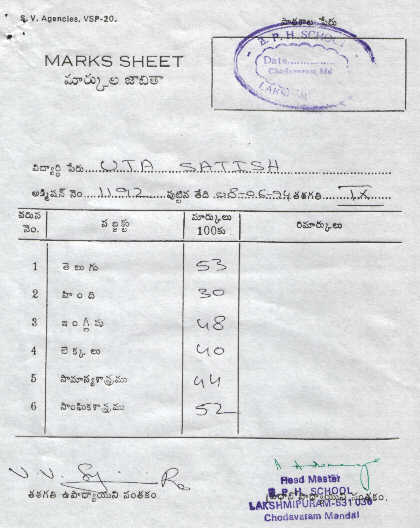 S. V. Agencies, VSP-20.
పాఠశాల పేరు
B. P. H. SCHOOL
Date
Chodavaram Md
LAKSHMI
MARKS SHEET
మార్కుల జాబితా
విద్యార్ధి పేరు UTA SATISH
అడ్మిషన్ నెం 1192 పుట్టిన తేది తరగతి IX
వరుస నెం. సబ్జక్టు మార్కులు 100కు రిమార్కులు
1 తెలుగు 53
2 హింది 30
3 ఇంగ్లీషు 48
4 లెక్కలు 40
5 సామాన్యశాస్త్రము 44
6 సాంఘికశాస్త్రము 52
తరగతి ఉపాధ్యాయుని సంతకం
Head Master
B. P. H. SCHOOL
LAKSHMIPURAM-531 036
Chodavaram Mandal